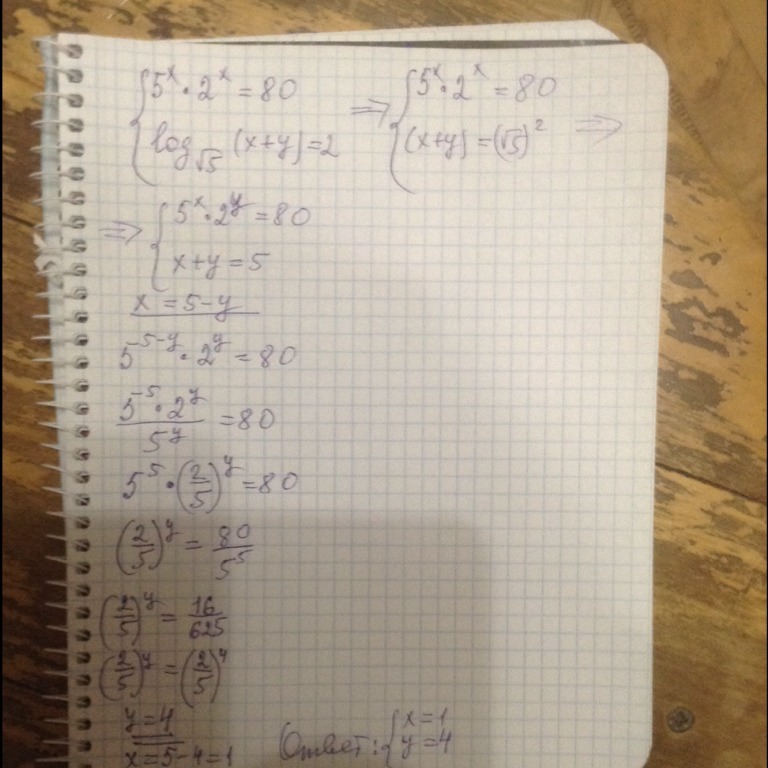 { 5^x · 2^x = 80 => { 5^x · 2^x = 80
log_√5 (x+y) = 2 (x+y) = (√5)^2 =>
=> { 5^x · 2^y = 80
x+y = 5
x = 5-y
5^(5-y) · 2^y = 80
5^5 · 2^y / 5^y = 80
5^5 · (2/5)^y = 80
(2/5)^y = 80/5^5
(2/5)^y = 16/625
(2/5)^y = (2/5)^4
y = 4
x = 5-4 = 1 Ответ: { x = 1
y = 4